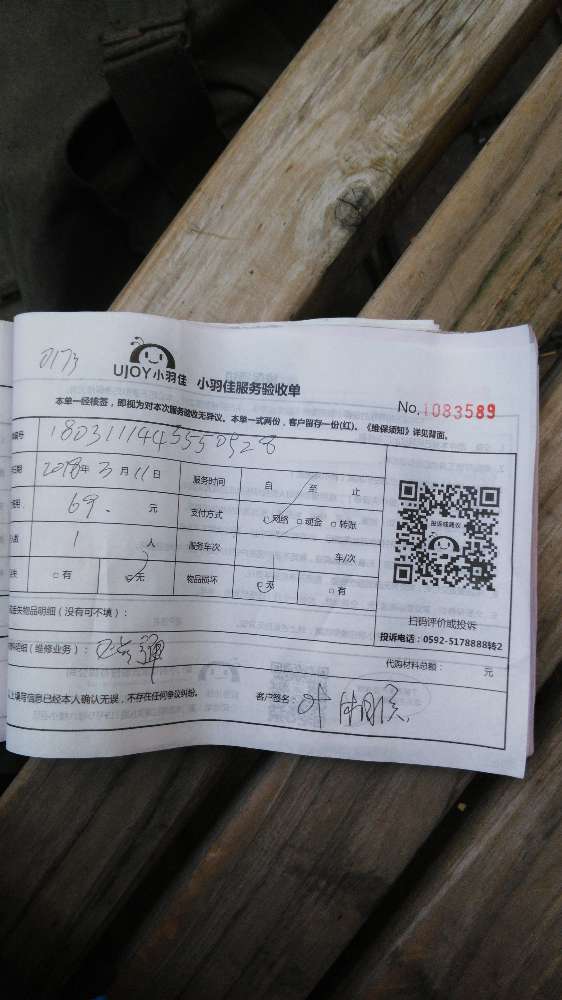 0173
UJOY小羽佳 小羽佳服务验收单
No.1083589
本单一经接签,即视为对本次服务验收无异议。本单一式两份,客户留存一份(红)。《维保须知》详见背面。
编号 18031114455550528
日期 2018年3月11日 服务时间 自 至 止
费用 69. 元 支付方式 ☑网络 □现金 □转账
1 人 服务车次 车/次
□有 ☑无 物品损坏 ☑无 □有
投诉或建议
扫码评价或投诉
投诉电话:0592-5178888转2
丢失物品明细(没有可不填):
材料明细(维修业务): 代购材料总额: 元
以上填写信息已经本人确认无误,不存在任何争议纠纷。 客户签名: